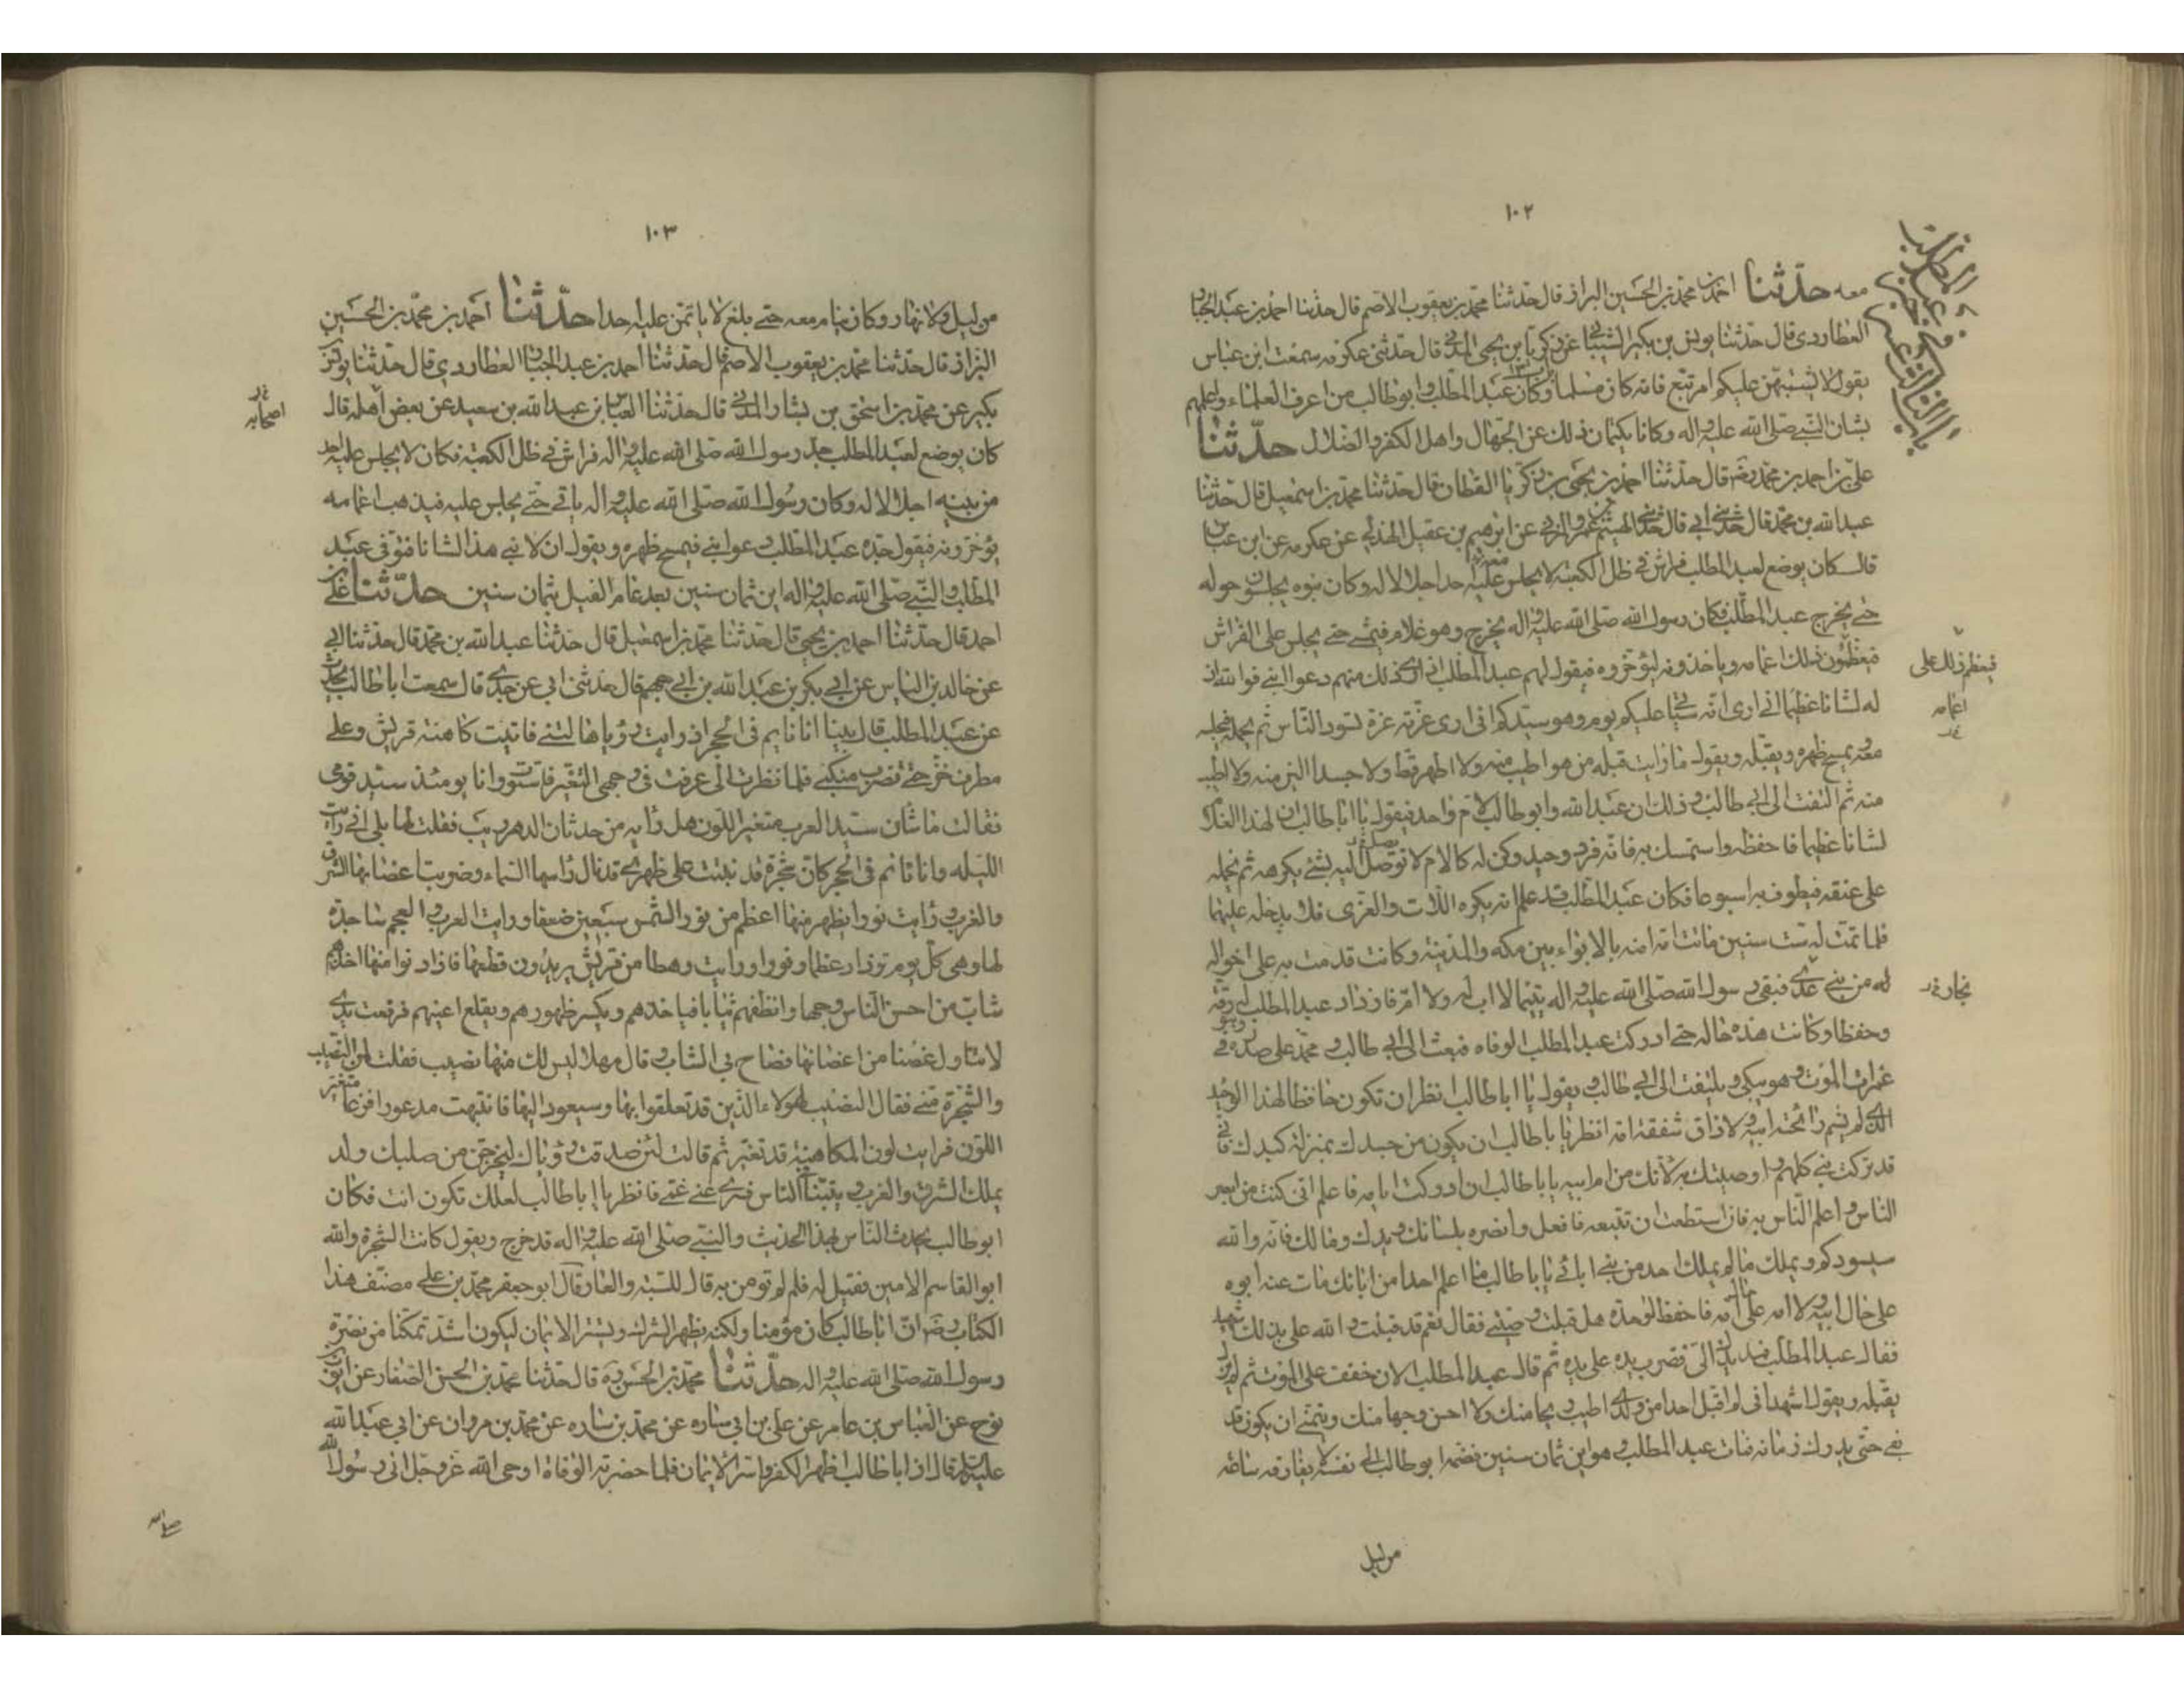 ١٠٢
باب الثاني عشر في خبر عبد المطلب
معه حدّثنا احمد بن محمد بن الحسين البزاز قال حدثنا محمد بن يعقوب الاصم قال حدثنا احمد بن عبد الجبار
العطاردي قال حدثنا يونس بن بكير الشيباني عن زكريا بن يحيى المدني قال حدثني عكرمه سمعت ابن عباس
يقول لا يشتبهن عليكم امر تبع فانه كان مسلما وكان عبد المطلب وابو طالب من اعرف العلماء واعلمهم
بشان النبي صلى الله عليه واله وكانا يكتمان ذلك عن الجهال واهل الكفر والضلال حدّثنا
علي بن احمد بن محمد رضه قال حدثنا احمد بن يحيى بن زكريا القطان قال حدثنا محمد بن اسمعيل قال حدثنا
عبد الله بن محمد قال حدثني ابي قال حدثني الهيثم عمرو المزني عن ابرهيم بن عقيل الهذلي عن عكرمه عن ابن عباس
قال كان يوضع لعبد المطلب فراش في ظل الكعبة لا يجلس عليه احد اجلالا له وكان بنوه يجلسون حوله
حتى يخرج عبد المطلب فكان رسول الله صلى الله عليه واله يخرج وهو غلام فيمشي حتى يجلس على الفراش
فيعظمون ذلك اعمامه وياخذونه ليؤخروه فيقول لهم عبد المطلب اذا راى ذلك منهم دعوا ابني فوالله ان
فيعظم ذلك على
اعمامه
له لشانا عظيما اني ارى انه سياتي عليكم يوم وهو سيدكم اني ارى غرته غرة تسود الناس ثم يحمله فيجلسه
معه ويمسح ظهره ويقبله ويقول ما رايت قبله من هو اطيب منه ولا اطهر قط ولا جسدا الين منه ولا اطيب
منه ثم التفت الى ابي طالب وذلك ان عبد الله وابو طالب لام واحد فيقول يا ابا طالب ان لهذا الغلام
لشانا عظيما فاحفظه واستمسك به فانه فرد وحيد وكن له كالام لا توصل اليه بشئ يكرهه ثم يحمله
على عنقه فيطوف به اسبوعا فكان عبد المطلب قد علم انه يكره اللات والعزى فلا يدخله عليهما
فلما تمت له ست سنين ماتت امه امنه بالابواء بين مكه والمدينه وكانت قدمت به على اخواله
له من بني عدي فبقي رسول الله صلى الله عليه واله يتيما لا اب له ولا ام فازداد عبد المطلب له رقة
نجار
وحفظا وكانت هذه حاله حتى ادركت عبد المطلب الوفاه فبعث الى ابي طالب ومحمد على صدره وهو في
غمرات الموت وهو يبكي ويلتفت الى ابي طالب ويقول يا ابا طالب انظر ان تكون حافظا لهذا الوحيد
الذي لم يشم رائحة ابيه ولا ذاق شفقة امه انظر يا ابا طالب ان يكون من جسدك بمنزلة كبدك فاني
قد تركت بني كلهم واوصيتك به لانك من ام ابيه يا ابا طالب ان ادركت ايامه فاعلم اني كنت من ابصر
الناس واعلم الناس به فان استطعت ان تتبعه فافعل وانصره بلسانك ويدك ومالك فانه والله
سيسودكم ويملك ما لم يملك احد من بني ابائي يا ابا طالب ما اعلم احدا من ابائك مات عنه ابوه
على حال ابيه ولا امه على حال امه فاحفظه لوحدته هل قبلت وصيتي فقال نعم قد قبلت والله على بذلك شهيد
فقال عبد المطلب فمد يدك الي فضرب يده على يده ثم قال عبد المطلب الان خفف على الموت ثم لم يزل
يقبله ويقول اشهد اني لم اقبل احدا من ولدي اطيب ريحا منك ولا احسن وجها منك ويتمنى ان يكون قد
بقي حتى يدرك زمانه فمات عبد المطلب وهو ابن ثمان سنين فضمه ابو طالب الى نفسه لا يفارقه ساعه
من ليل
١٠٣
من ليل ولا نهار وكان ينام معه حتى بلغ لا ياتمن عليه احدا حدّثنا احمد بن محمد بن الحسين
البزاز قال حدثنا محمد بن يعقوب الاصم قال حدثنا احمد بن عبد الجبار العطاردي قال حدثنا يونس بن
بكير عن محمد بن اسحق بن بشار المدني قال حدثنا العباس بن عبد الله بن سعيد عن بعض اهله قال
اصحابه
كان يوضع لعبد المطلب جد رسول الله صلى الله عليه واله فراش في ظل الكعبة فكان لا يجلس عليه احد
من بنيه اجلالا له وكان رسول الله صلى الله عليه واله ياتي حتى يجلس عليه فيذهب اعمامه
يؤخرونه فيقول جده عبد المطلب دعوا ابني فيمسح ظهره ويقول ان لابني هذا لشانا فتوفى عبد
المطلب والنبي صلى الله عليه واله ابن ثمان سنين بعد عام الفيل بثمان سنين حدّثنا علي بن
احمد قال حدثنا احمد بن يحيى قال حدثنا محمد بن اسمعيل قال حدثنا عبد الله بن محمد قال حدثنا ابي
عن خالد بن الياس عن ابي بكر بن عبد الله بن ابي جهم قال حدثني ابي عن جدي قال سمعت ابا طالب يحدث
عن عبد المطلب قال بينا انا نايم في الحجر اذ رايت رؤيا هالتني فاتيت كاهنة قريش وعلي
مطرف خز وجمتي تضرب منكبي فلما نظرت الي عرفت في وجهي التغير فاستوت وانا يومئذ سيد قومي
فقالت ما شان سيد العرب متغير اللون هل رابه من حدثان الدهر ريب فقلت لها بلى اني رايت
الليله وانا نائم في الحجر كان شجرة قد نبتت على ظهري قد نال راسها السماء وضربت اغصانها الشرق
والغرب ورايت نورا يظهر منها اعظم من نور الشمس سبعين ضعفا ورايت العرب والعجم ساجدة
لها وهي كل يوم تزداد عظما ونورا ورايت رهطا من قريش يريدون قطعها فاذا دنوا منها اخذهم
شاب من احسن الناس وجها وانظفهم ثيابا فياخذهم ويكسر ظهورهم ويقلع اعينهم فرفعت يدي
لاتناول غصنا من اغصانها فصاح بي الشاب وقال مهلا ليس لك منها نصيب فقلت لمن النصيب
والشجرة مني فقال النصيب لهولاء الذين قد تعلقوا بها وسيعود اليها فانتبهت مذعورا فزعا متغير
اللون فرايت لون الكاهنة قد تغير ثم قالت لئن صدقت رؤياك ليخرجن من صلبك ولد
يملك الشرق والغرب ويتنبأ الناس فسري عني غمي فانظر يا ابا طالب لعلك تكون انت فكان
ابو طالب يحدث الناس بهذا الحديث والنبي صلى الله عليه واله قد خرج ويقول كانت الشجرة والله
ابو القاسم الامين فقيل له فلم لم تومن به قال للسبة والعار قال ابو جعفر محمد بن علي مصنف هذا
الكتاب رضه ان ابا طالب كان مؤمنا ولكنه يظهر الشرك ويستر الايمان ليكون اشد تمكنا من نصرة
رسول الله صلى الله عليه واله حدّثنا محمد بن الحسن ره قال حدثنا محمد بن الحسن الصفار عن ايوب بن
نوح عن العباس بن عامر عن علي بن ابي ساره عن محمد بن مروان عن ابي عبد الله
عليه السلام قال ان ابا طالب اظهر الكفر واسر الايمان فلما حضرته الوفاة اوحى الله عز وجل الى رسول الله
صلى الله